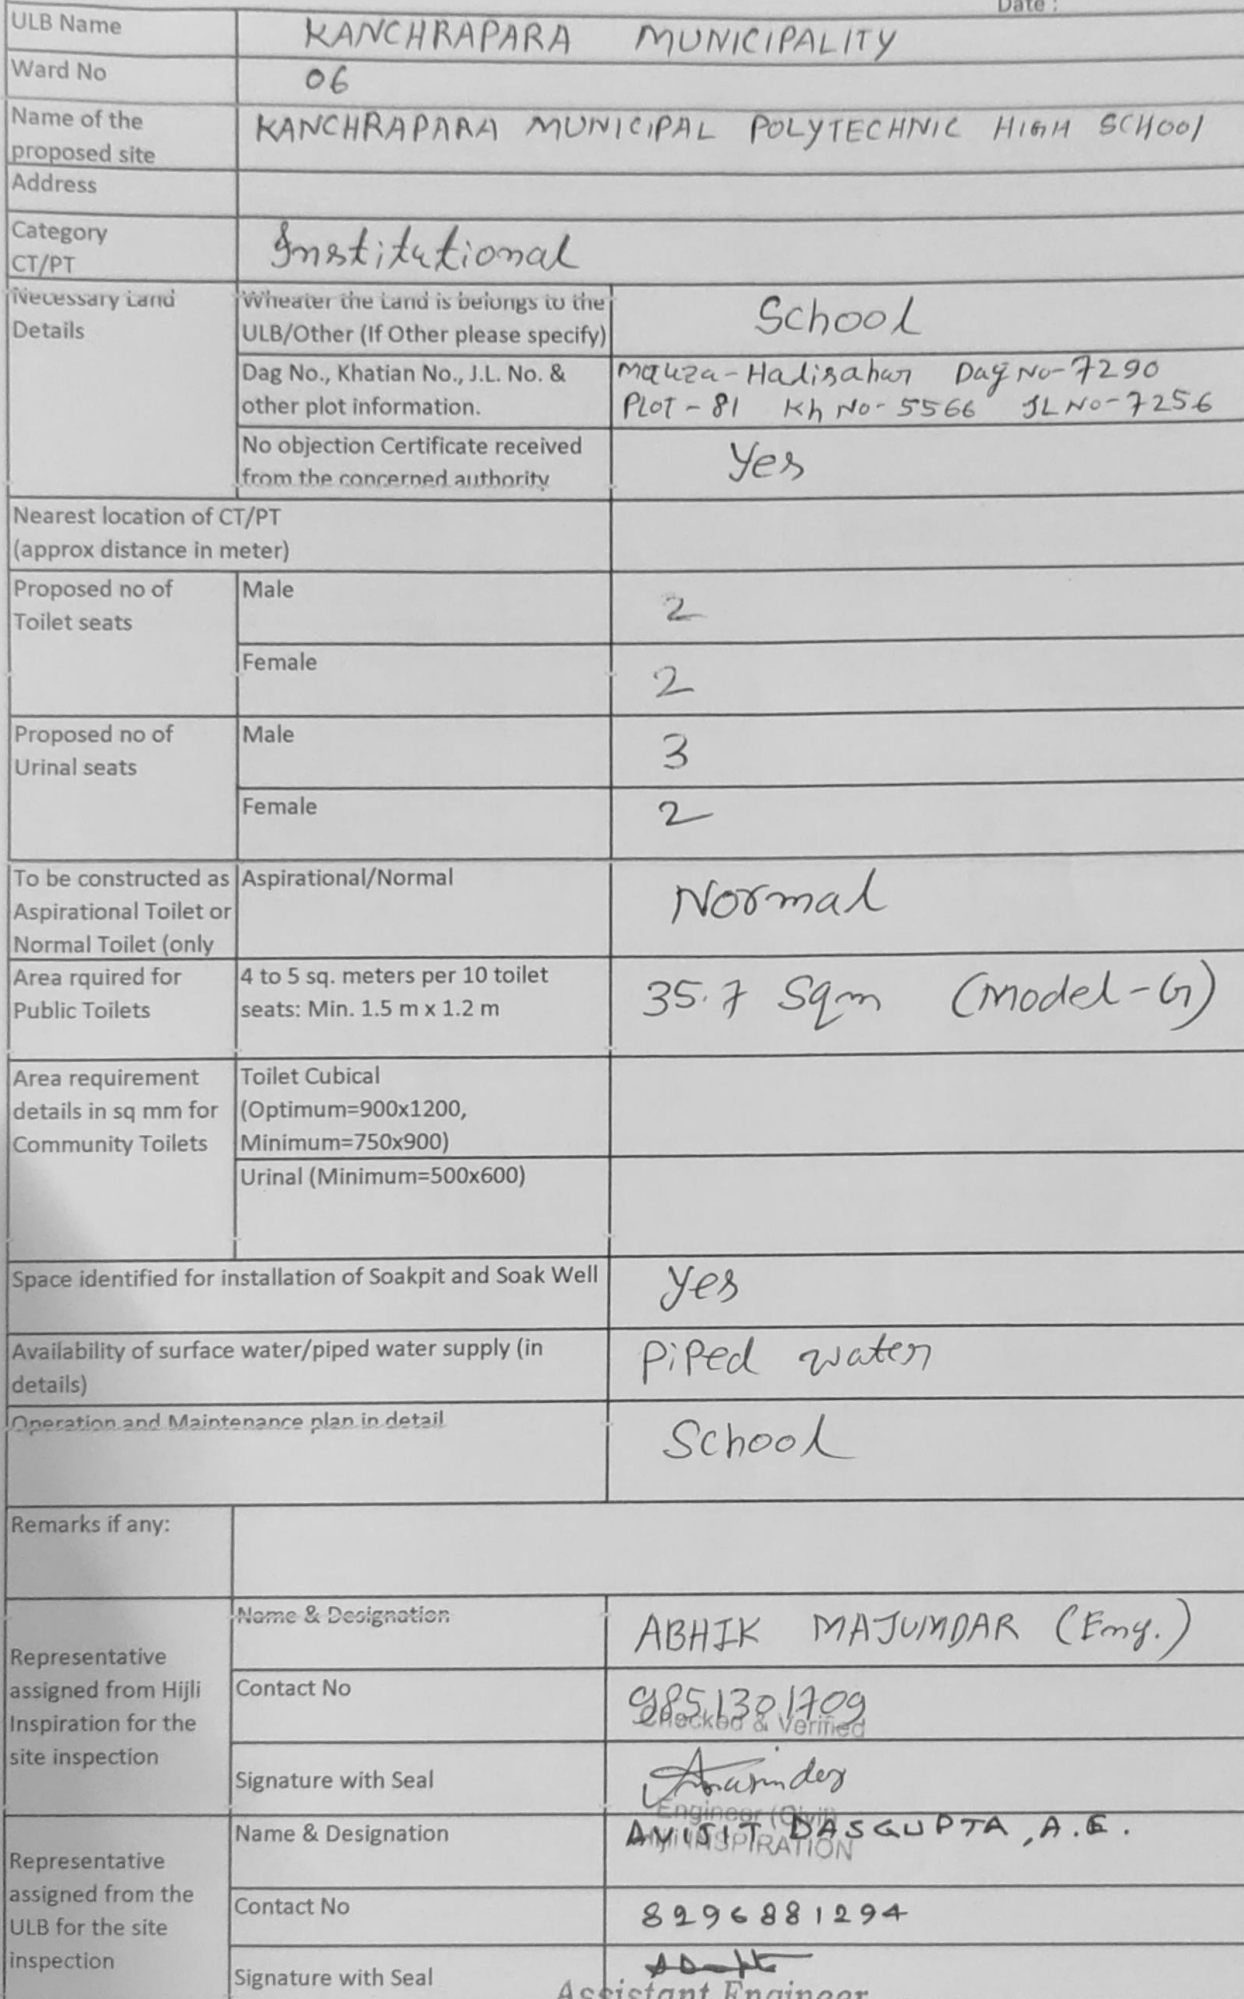 Date :
ULB Name KANCHRAPARA MUNICIPALITY
Ward No 06
Name of the
proposed site KANCHRAPARA MUNICIPAL POLYTECHNIC HIGH SCHOOL
Address
Category
CT/PT Institutional
Necessary Land
Details
Wheater the Land is belongs to the
ULB/Other (If Other please specify) School
Dag No., Khatian No., J.L. No. &
other plot information.
Mauza - Halisahar Dag No - 7290
PLOT - 81 Kh No - 5566 JL No - 7256
No objection Certificate received
from the concerned authority Yes
Nearest location of CT/PT
(approx distance in meter)
Proposed no of
Toilet seats
Male 2
Female 2
Proposed no of
Urinal seats
Male 3
Female 2
To be constructed as
Aspirational Toilet or
Normal Toilet (only
Aspirational/Normal Normal
Area rquired for
Public Toilets
4 to 5 sq. meters per 10 toilet
seats: Min. 1.5 m x 1.2 m
35.7 Sqm (Model-G)
Area requirement
details in sq mm for
Community Toilets
Toilet Cubical
(Optimum=900x1200,
Minimum=750x900)
Urinal (Minimum=500x600)
Space identified for installation of Soakpit and Soak Well Yes
Availability of surface water/piped water supply (in
details) Piped water
Operation and Maintenance plan in detail School
Remarks if any:
Representative
assigned from Hijli
Inspiration for the
site inspection
Name & Designation ABHIK MAJUMDAR (Eng.)
Contact No 9851301709
Checked & Verified
Signature with Seal
Engineer (Civil)
Hijli INSPIRATION
Representative
assigned from the
ULB for the site
inspection
Name & Designation AVIJIT DASGUPTA, A.E.
Contact No 8296881294
Signature with Seal
Assistant Engineer